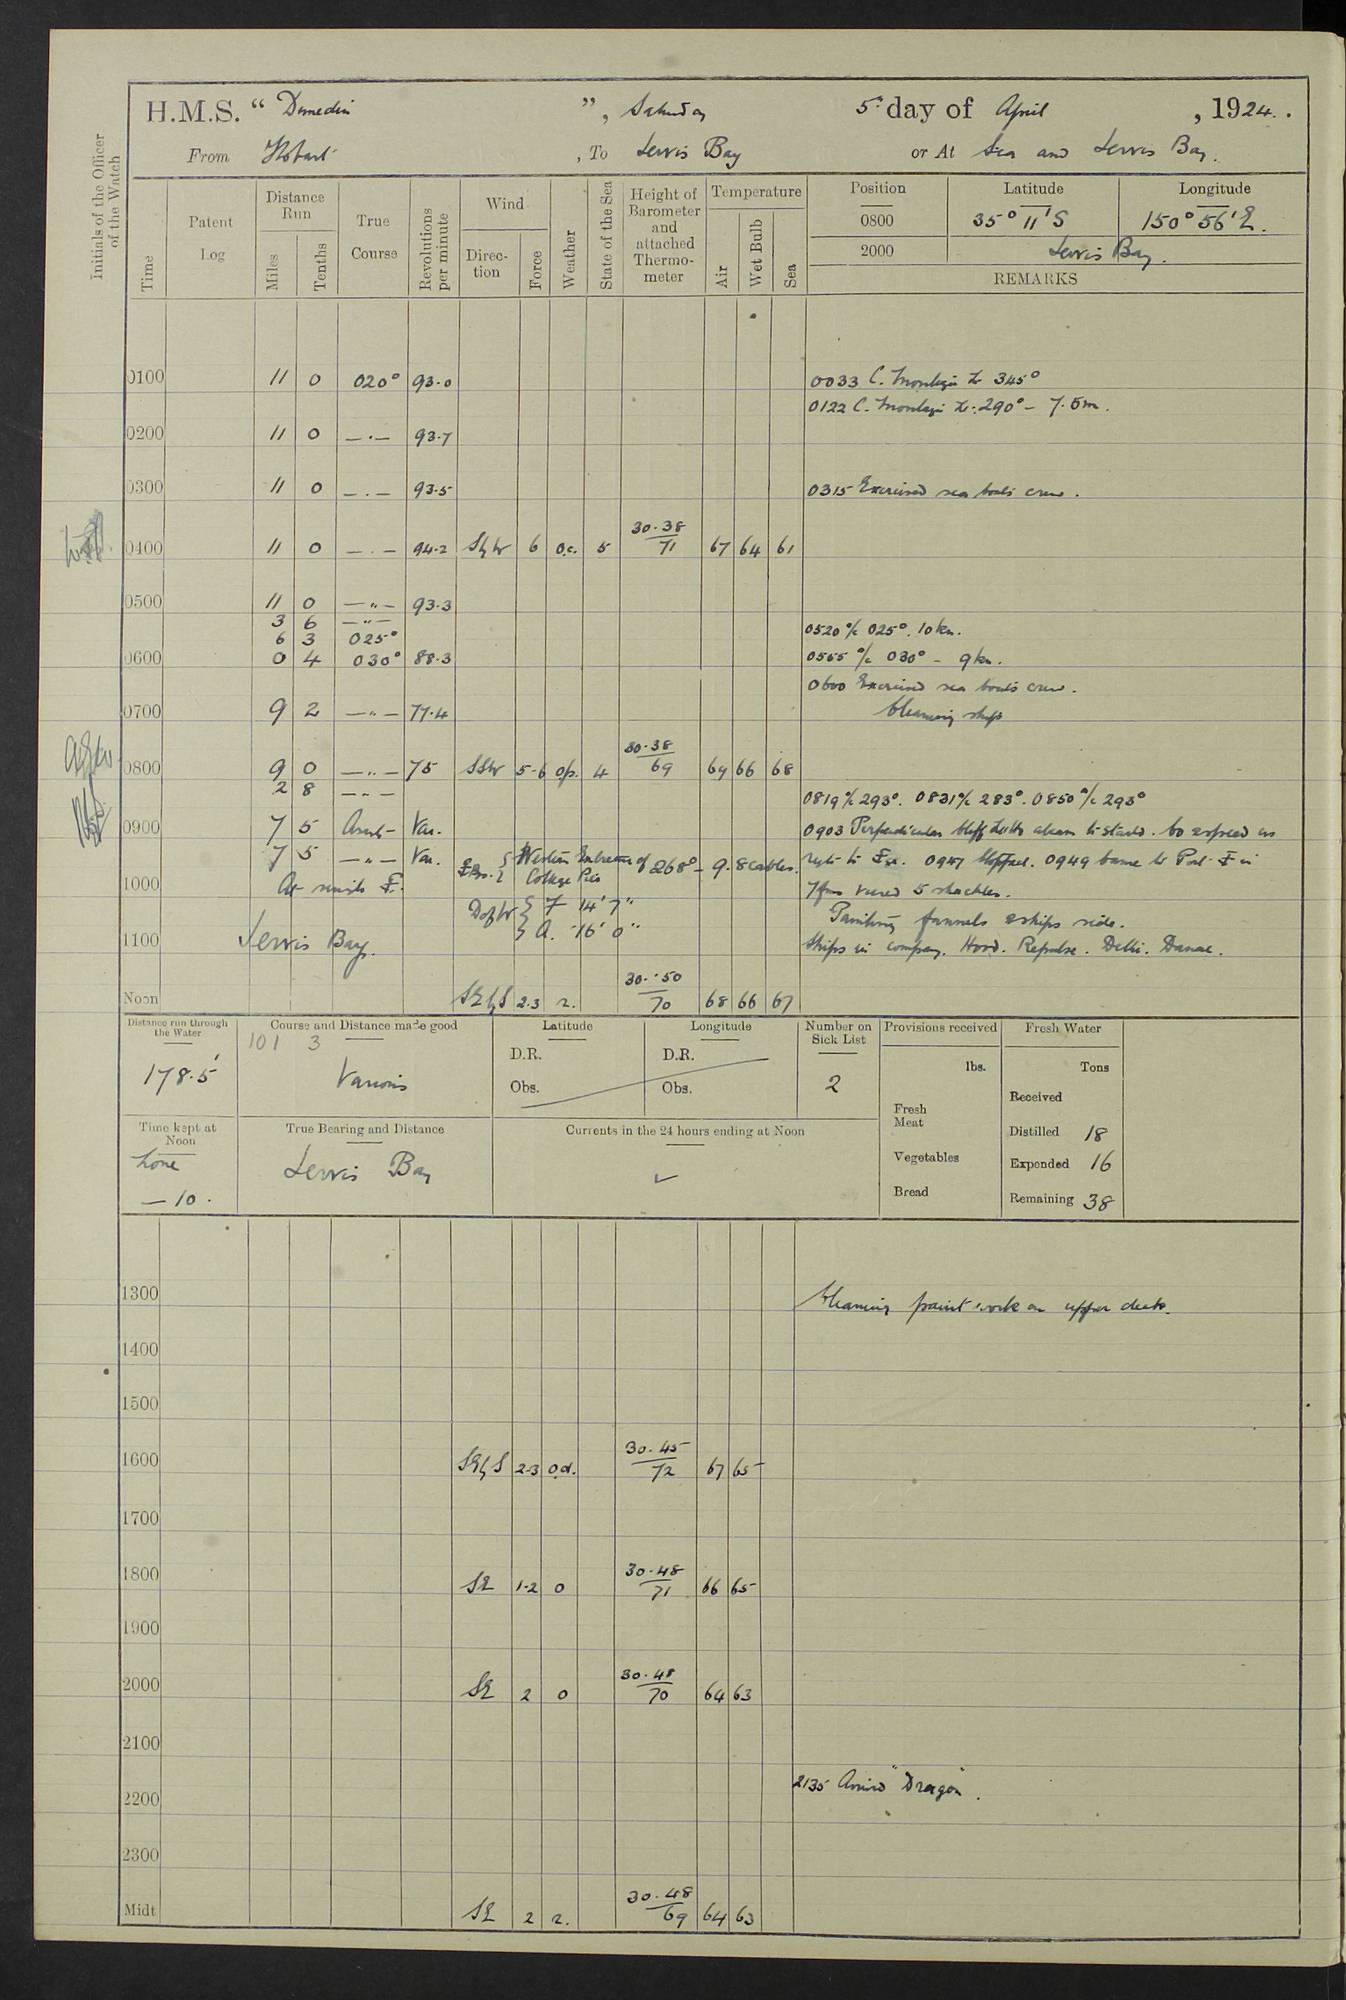 H.M.S. “ Dunedin ”, Saturday 5th day of April, 1924.
From Hobart, To Jervis Bay or At Sea and Jervis Bay.
Initials of the Officer of the Watch
Time
Patent Log
Distance Run
Miles
Tenths
True Course
Revolutions per minute
Wind
Direction
Force
Weather
State of the Sea
Height of Barometer and attached Thermometer
Temperature
Air
Wet Bulb
Sea
Position Latitude Longitude
0800 35° 11' S 150° 56' E.
2000 Jervis Bay.
REMARKS
0100 11 0 020° 93.0 0033 C. Montague Lt 345°
0122 C. Montague Lt. 290° – 7.5m.
0200 11 0 — . — 93.7
0300 11 0 — . — 93.5 0315 Exercised sea boats crew.
0400 11 0 — . — 94.2 S by W 6 o.c. 5 30.38/71 67 64 61
0500 11 0 — " — 93.3
3 6 — " — 0520 a/c 025°. 10 kn.
6 3 025°
0600 0 4 030° 88.3 0555 a/c 030° – 9 kn.
0600 Exercised sea boats crew.
0700 9 2 — " — 77.4 Cleaning ship
0800 9 0 — " — 75 SSW 5-6 op. 4 30.38/69 69 66 68
2 8 — " — 0819 a/c 293°. 0831 a/c 283°. 0850 a/c 293°
0900 7 5 Var. 0903 Perpendicular bluff Lt Ho abeam to starbd. Co & speed as
7 5 — " — Var. Brs. { Western Entrance of College Pier 268° – 9.8 cables. reqte to 0947 Stopped. 0949 came to Port in
1000 At single 7 fms veered 5 shackles.
D of W { F 14' 7" Painting funnels & ships side.
1100 Jervis Bay. { A. 16' 0" Ships in company. Hood. Repulse. Delhi. Danae.
Noon SE by S 2-3 r. 30.50/70 68 66 67
Distance run through the Water
178.5'
Course and Distance made good
101 3
Various
Latitude
D.R.
Obs.
Longitude
D.R.
Obs.
Number on Sick List
2
Provisions received
lbs.
Fresh Meat
Vegetables
Bread
Fresh Water
Tons
Received
Distilled 18
Expended 16
Remaining 38
Time kept at Noon
Zone
— 10.
True Bearing and Distance
Jervis Bay
Currents in the 24 hours ending at Noon
1300 Cleaning paint work on upper deck.
1400
1500
1600 SE by S 2-3 o.d. 30.45/72 67 65
1700
1800 SE 1-2 o 30.48/71 66 65
1900
2000 SE 2 o 30.48/70 64 63
2100
2135 Arrived "Dragon".
2200
2300
Midt SE 2 r. 30.48/69 64 63